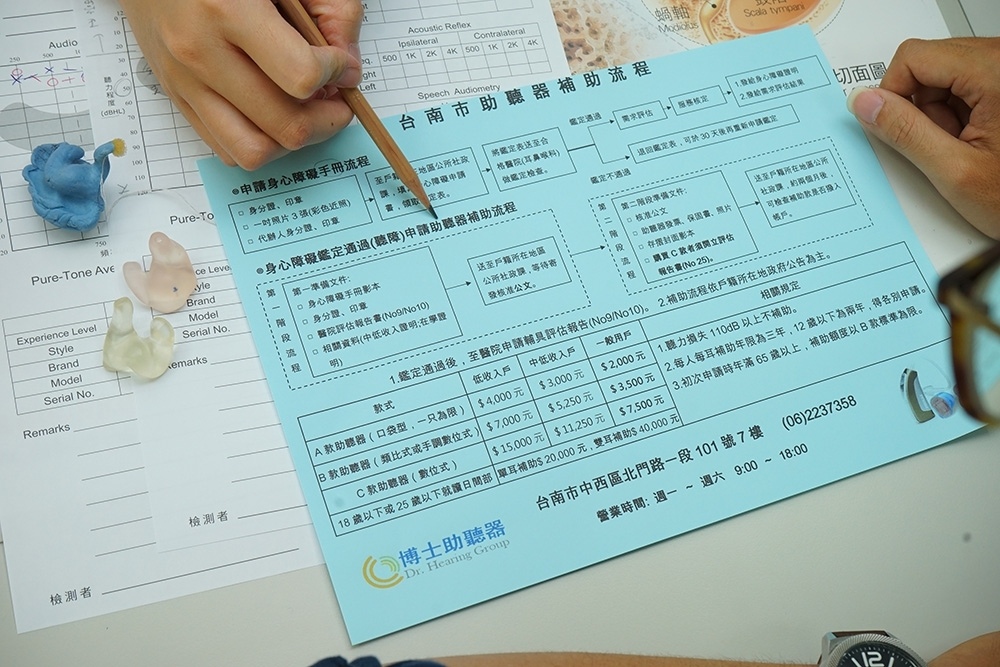 Audio
250
500
聽力程度(dBHL)
90
100
110
120
750
Acoustic Reflex
Ipsilateral Contralateral
500 1K 2K 4K 500 1K 2K 4K
Left
Speech Audiometry
蝸軸
Modiolus
Scala tympani
切面圖
Pure-Tone Ave
Experience Level
Style
Brand
Model
Serial No.
Remarks
檢測者
Pure-To
Level
Style
Brand
Model
Serial No.
Remarks
檢測者
台南市助聽器補助流程
申請身心障礙手冊流程
□ 身分證、印章
□ 一吋照片3張(彩色近照)
□ 代辦人身分證、印章
至戶籍
地區公所社政
課,填
心障礙申請
書,領取
定表。
將鑑定表送至合
格醫院(耳鼻喉科)
做鑑定檢查。
鑑定通過
需求評估
服務核定
1.發給身心障礙證明
2.發給需求評估結果
鑑定不通過
退回鑑定表,可於30天後再重新申請鑑定
身心障礙鑑定通過(聽障)申請助聽器補助流程
第一階段流程
第一準備文件:
□ 身心障礙手冊影本
□ 身分證、印章
□ 醫院評估報告書(No9/No10)
□ 相關資料(中低收入證明;在學證
明)
送至戶籍所在地區
公所社政課,等待寄
發核准公文。
第二階段流程
第二階段準備文件:
□ 核准公文
□ 助聽器發票、保固書、照片
□ 存摺封面影本
□ 購買C款者須開立評估
報告書(No 25)。
送至戶籍所在地區公所
社政課,約兩個月後,
可檢查補助款是否撥入
帳戶。
1.鑑定通過後,至醫院申請輔具評估報告(No9/No10)。2.補助流程依戶籍所在地政府公告為主。
款式 低收入戶 中低收入戶 一般用戶
A款助聽器(口袋型,一只為限) $4,000元 $3,000元 $2,000元
B款助聽器(類比式或手調數位式) $7,000元 $5,250元 $3,500元
C款助聽器(數位式) $15,000元 $11,250元 $7,500元
18歲以下或25歲以下就讀日間部 單耳補助$20,000元,雙耳補助$40,000元
相關規定
1.聽力損失110dB以上不補助。
2.每人每耳補助年限為三年,12歲以下為兩年,得各別申請。
3.初次申請時年滿65歲以上,補助額度以B款標準為限。
台南市中西區北門路一段101號7樓 (06)2237358
營業時間: 週一 ~ 週六 9:00 ~ 18:00
博士助聽器
Dr. Hearing Group
12